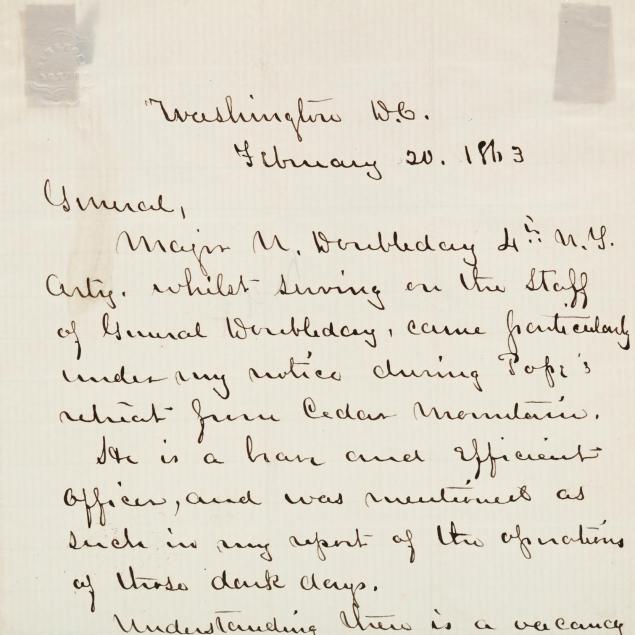 Washington D.C.
February 20. 1863
General,
Major U. Doubleday 4th N.Y.
Arty. whilst serving on the Staff
of General Doubleday, came particularly
under my notice during Pope's
retreat from Cedar Mountain.
He is a brave and efficient
officer, and was mentioned as
such in my report of the operations
of those dark days.
Understanding there is a vacancy